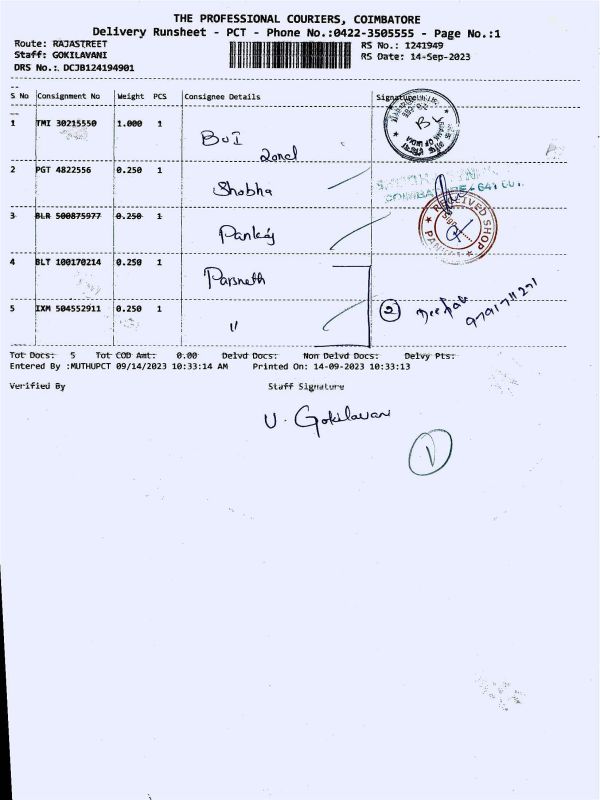 THE PROFESSIONAL COURIERS, COIMBATORE
Delivery Runsheet - PCT - Phone No.:0422-3505555 - Page No.:1
Route: RAJASTREET
RS No.: 1241949
Staff: GOKILAVANI
RS Date: 14-Sep-2023
DRS No.: DCJB124194901
S No Consignment No Weight PCS Consignee Details Signature
1 TMI 30215550 1.000 1 BOI
Zonel
BANK OF INDIA
2 PGT 4822556 0.250 1 Shobha
3 BLR 500875977 0.250 1 Pankaj
RECEIVED SHOP
4 BLT 100170214 0.250 1 Parsneth
5 IXM 504552911 0.250 1 "
2 Deepak
9791711271
Tot Docs: 5 Tot COD Amt: 0.00 Delvd Docs: Non Delvd Docs: Delvy Pts:
Entered By :MUTHUPCT 09/14/2023 10:33:14 AM Printed On: 14-09-2023 10:33:13
Verified By Staff Signature
V. Gokilavani
1